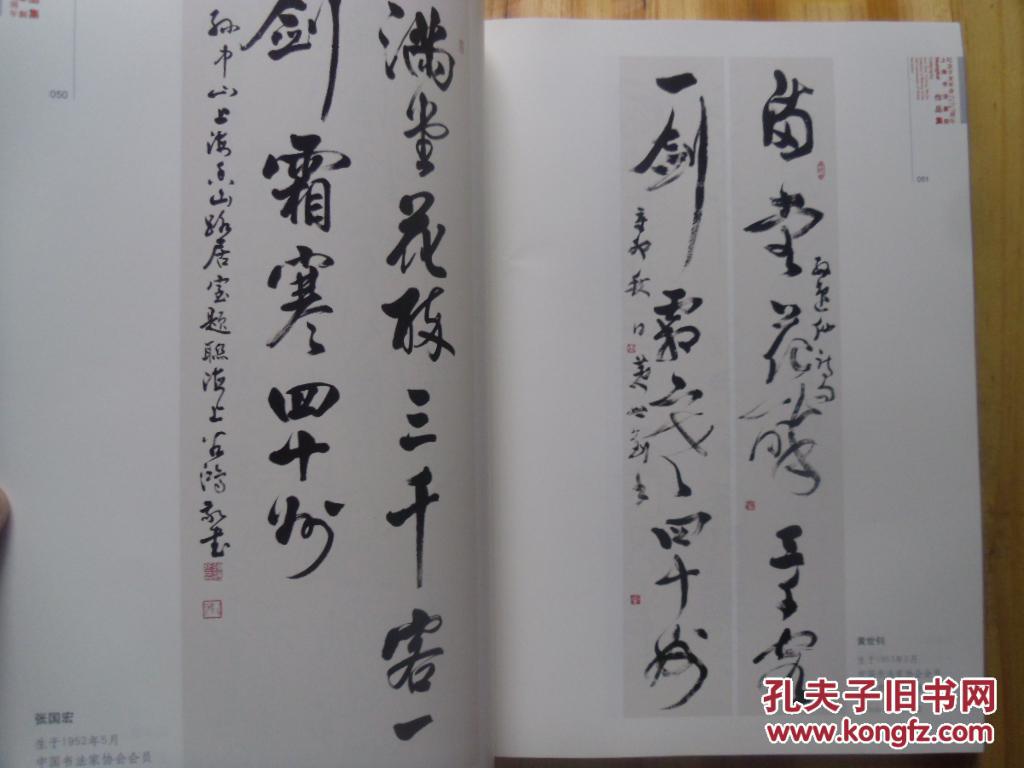 050
满堂花醉三千客一
剑霜寒四十州
孙中山上海香山路居室题联海上
张国宏
生于1952年5月
中国书法家协会会员
作品集
051
满堂花醉三千客
孙逸仙诗句
一剑霜寒四十州
辛卯秋日黄世钊书
黄世钊
生于1953年2月
中国书法家协会会员
孔夫子旧书网
www.kongfz.com